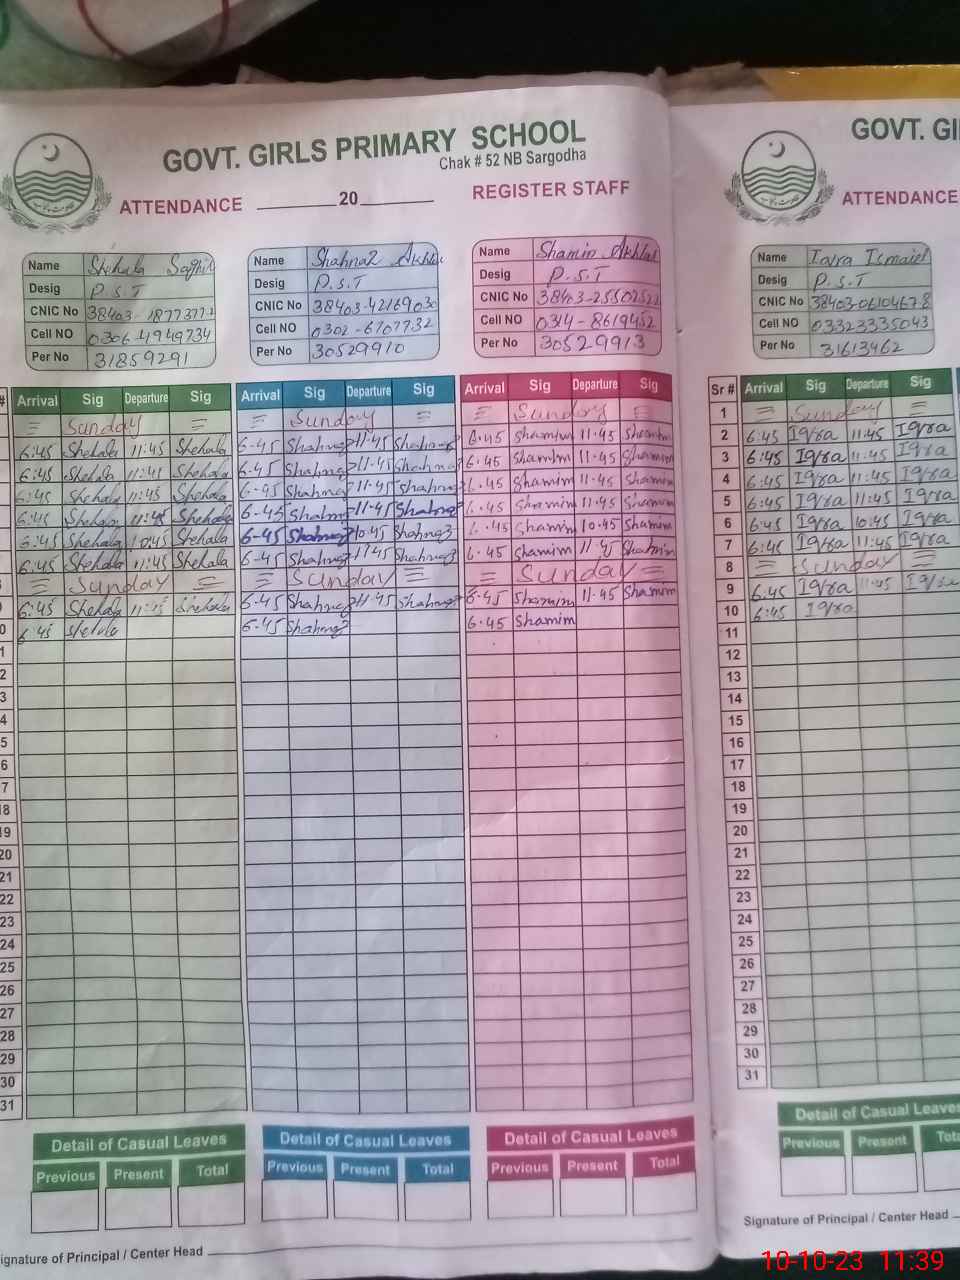 GOVT. GIRLS PRIMARY SCHOOL
Chak # 52 NB Sargodha
ATTENDANCE ________ 20 ________ REGISTER STAFF
Name Shehala
Desig P.S.T
CNIC No
Cell NO 0306-4949734
Per No 31859291
Name Shahnaz
Desig P.S.T
CNIC No
Cell NO 0302-6707732
Per No 30529910
Name Shamim
Desig P.S.T
CNIC No
Cell NO 0314-8619452
Per No 30529913
# Arrival Sig Departure Sig Arrival Sig Departure Sig Arrival Sig Departure Sig
= Sunday = = Sunday = = Sunday =
6:45 Shehala 11:45 Shehala 6-45 Shahnaz 11-45 Shahnaz 6.45 Shamim 11.45 Shamim
6:45 Shehala 11:45 Shehala 6-45 Shahnaz 11-45 Shahnaz 6.45 Shamim 11.45 Shamim
6:45 Shehala 11:45 Shehala 6-45 Shahnaz 11-45 Shahnaz 6.45 Shamim 11.45 Shamim
6:45 Shehala 11:45 Shehala 6-45 Shahnaz 11-45 Shahnaz 6.45 Shamim 11.45 Shamim
6:45 Shehala 10:45 Shehala 6-45 Shahnaz 10:45 Shahnaz 6.45 Shamim 10.45 Shamim
6:45 Shehala 11:45 Shehala 6-45 Shahnaz 11-45 Shahnaz 6.45 Shamim 11.45 Shamim
= Sunday = = Sunday = = Sunday =
6:45 Shehala 11:45 Shehala 6-45 Shahnaz 11-45 Shahnaz 6-45 Shamim 11-45 Shamim
0 6:45 Shehala 6-45 Shahnaz 6.45 Shamim
1
2
3
4
5
6
7
18
19
20
21
22
23
24
25
26
27
28
29
30
31
Detail of Casual Leaves Detail of Casual Leaves Detail of Casual Leaves
Previous Present Total Previous Present Total Previous Present Total
ignature of Principal / Center Head
GOVT. GI
ATTENDANCE
Name Iqra Ismail
Desig P.S.T
CNIC No 38403-0610467-8
Cell NO 03323335043
Per No 31613462
Sr # Arrival Sig Departure Sig
1 = Sunday =
2 6:45 Iqra 11:45 Iqra
3 6:45 Iqra 11:45 Iqra
4 6:45 Iqra 11:45 Iqra
5 6:45 Iqra 11:45 Iqra
6 6:45 Iqra 10:45 Iqra
7 6:45 Iqra 11:45 Iqra
8 = Sunday =
9 6:45 Iqra 11:45 Iqra
10 6:45 Iqra
11
12
13
14
15
16
17
18
19
20
21
22
23
24
25
26
27
28
29
30
31
Detail of Casual Leave
Previous Present Tot
Signature of Principal / Center Head
10-10-23 11:39